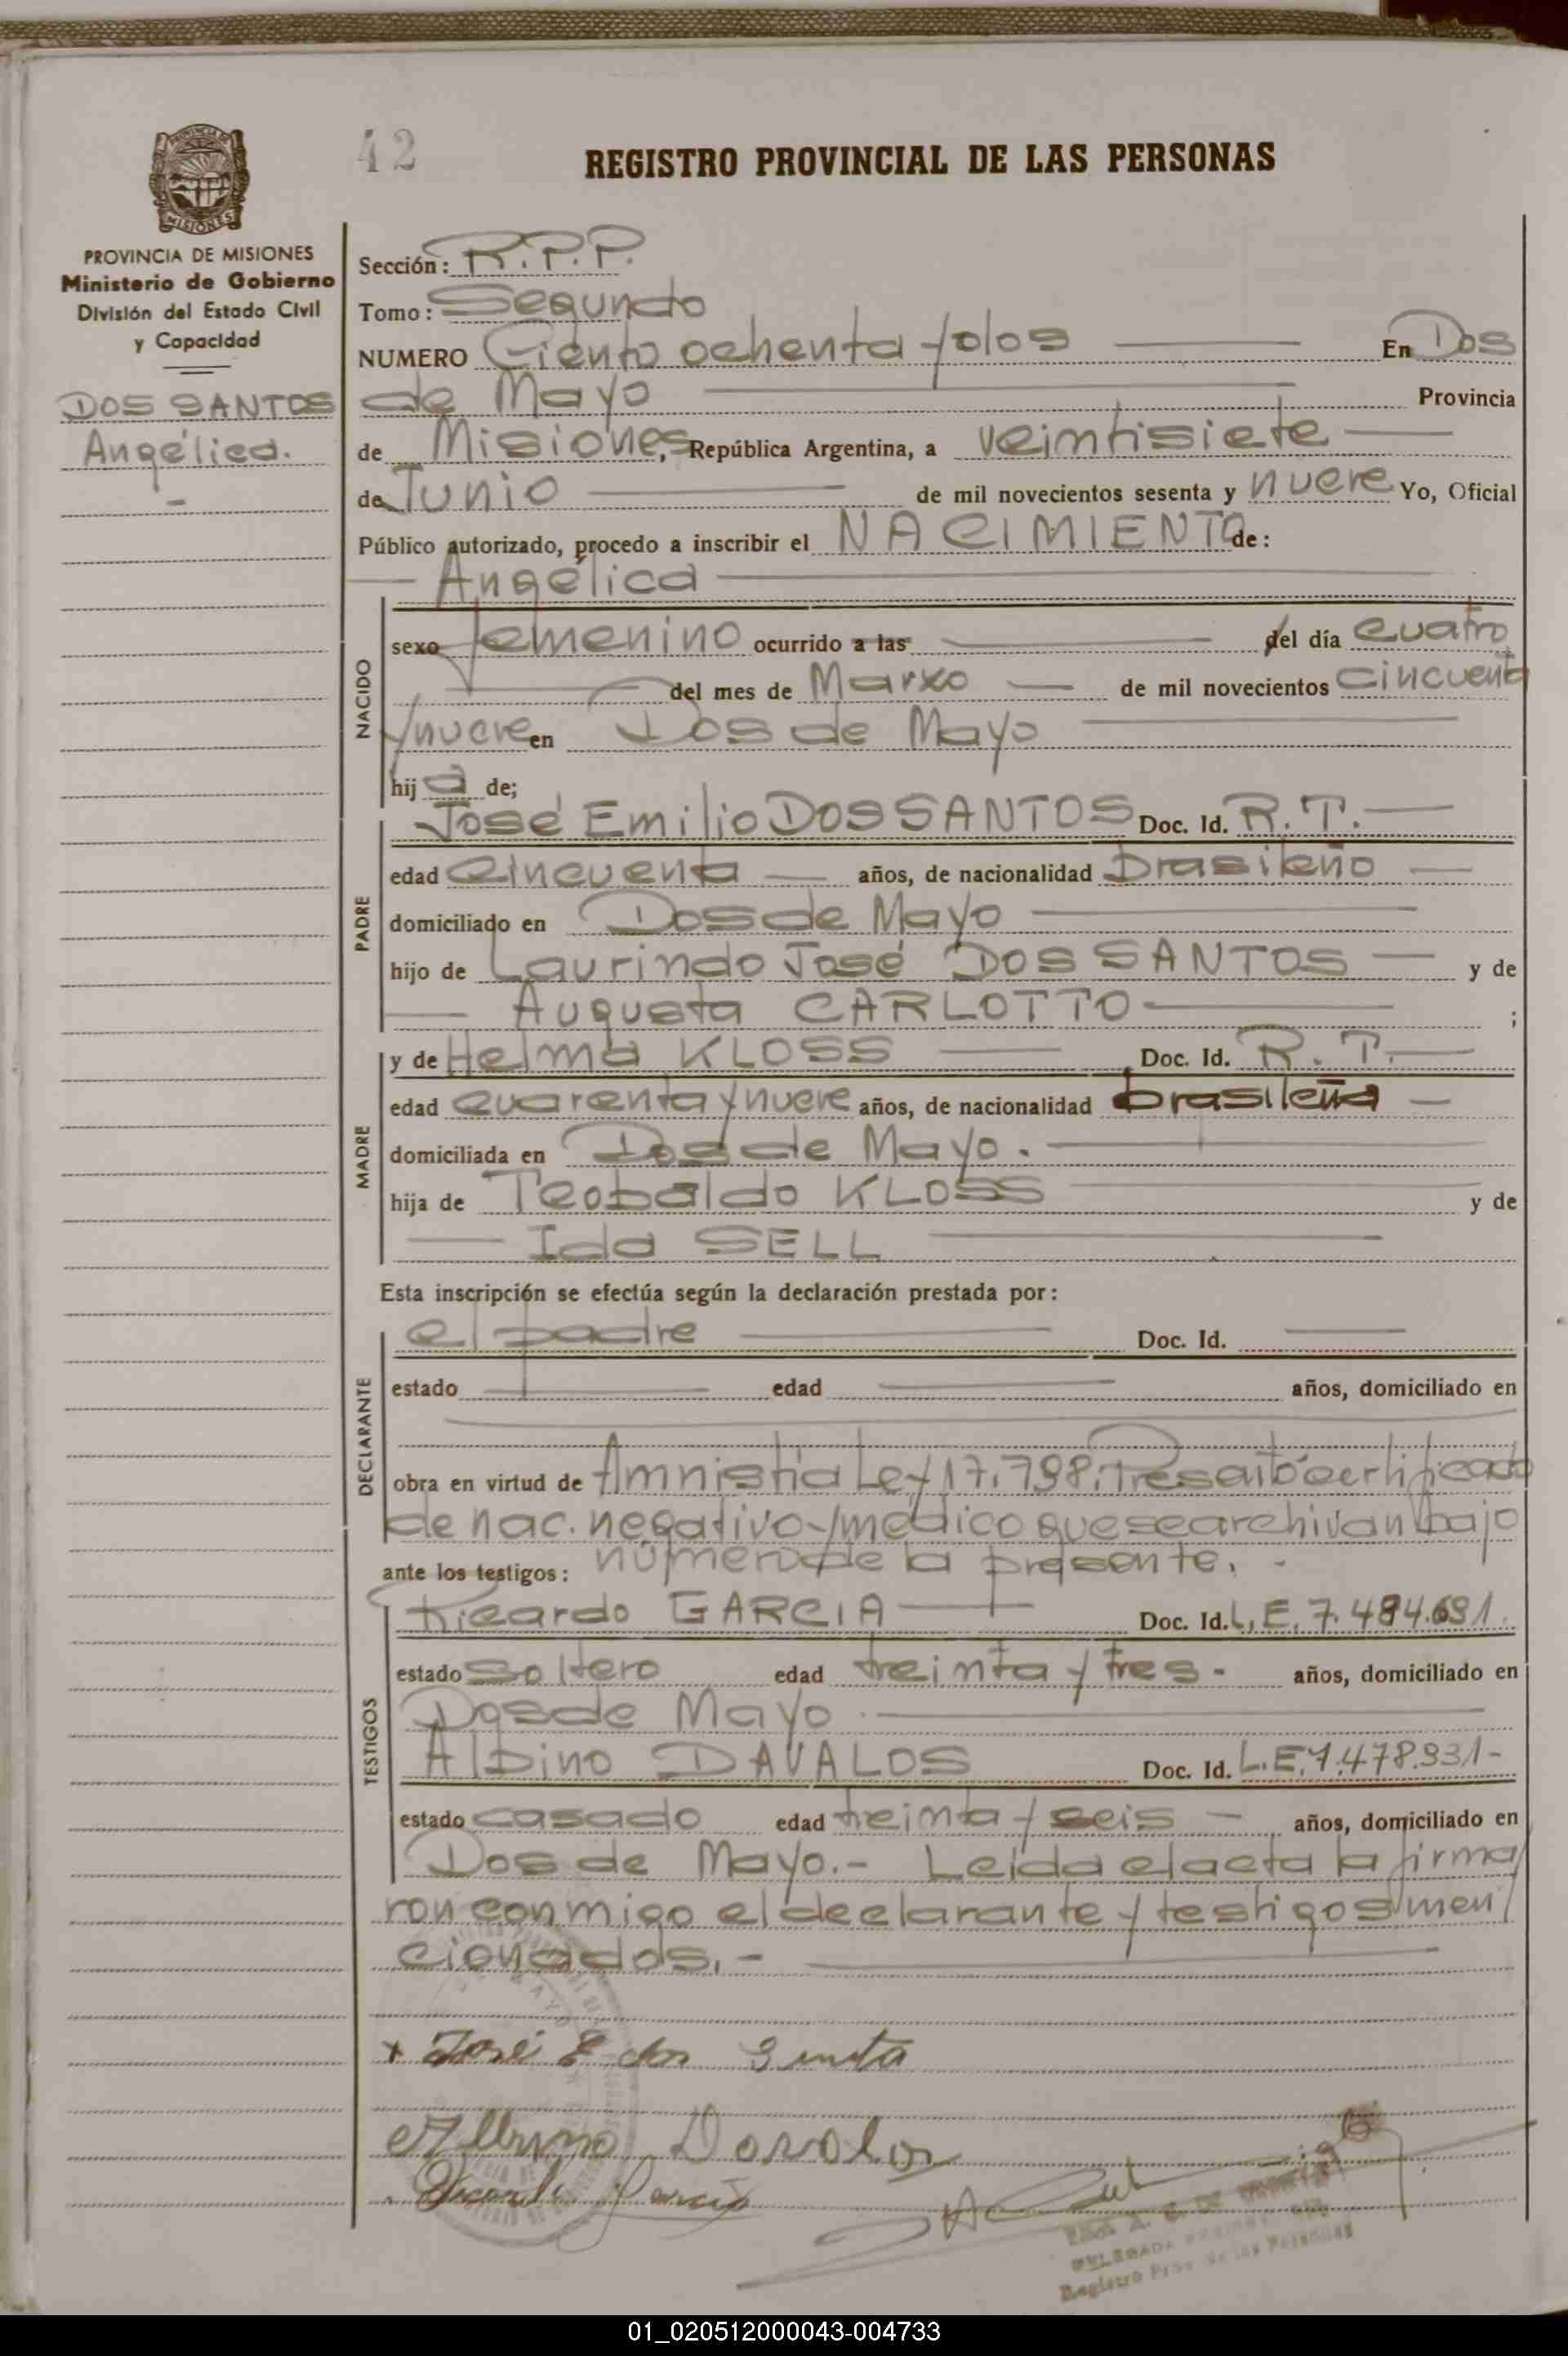 42
REGISTRO PROVINCIAL DE LAS PERSONAS
MISIONES
PROVINCIA DE MISIONES
Ministerio de Gobierno
División del Estado Civil
y Capacidad
DOS SANTOS
Angélica.
Sección: R.P.P.
Tomo: Segundo
NUMERO Ciento ochenta y dos En Dos
de Mayo Provincia
de Misiones, República Argentina, a veintisiete
de Junio de mil novecientos sesenta y nueve Yo, Oficial
Público autorizado, procedo a inscribir el NACIMIENTO de:
Angélica
NACIDO
sexo femenino ocurrido a las del día cuatro
del mes de Marzo de mil novecientos cincuenta
y nueve en Dos de Mayo
hija de;
PADRE
José Emilio DOS SANTOS Doc. Id. R.T.
edad cincuenta años, de nacionalidad brasileño
domiciliado en Dos de Mayo
hijo de Laurindo José DOS SANTOS y de
Augusta CARLOTTO ;
MADRE
y de Helma KLOSS Doc. Id. R.T.
edad cuarenta y nueve años, de nacionalidad brasileña
domiciliada en Dos de Mayo.
hija de Teobaldo KLOSS y de
Ida SELL
Esta inscripción se efectúa según la declaración prestada por:
DECLARANTE
el padre Doc. Id.
estado edad años, domiciliado en
obra en virtud de Amnistía Ley 17.798. Presentó certificado
de nac. negativo y médico que se archivan bajo
ante los testigos: número de la presente. -
TESTIGOS
Ricardo GARCIA Doc. Id. L.E. 7.484.691.
estado soltero edad treinta y tres - años, domiciliado en
Dos de Mayo
Albino DAVALOS Doc. Id. L.E. 7.478.931-
estado casado edad treinta y seis - años, domiciliado en
Dos de Mayo.- Leída el acta la firma
ron conmigo el declarante y testigos men
cionados.-
x José E dos Santos
Albino Davalos
Ricardo Garcia
DELEGADA
Registro Prov. de las Personas
01_020512000043-004733